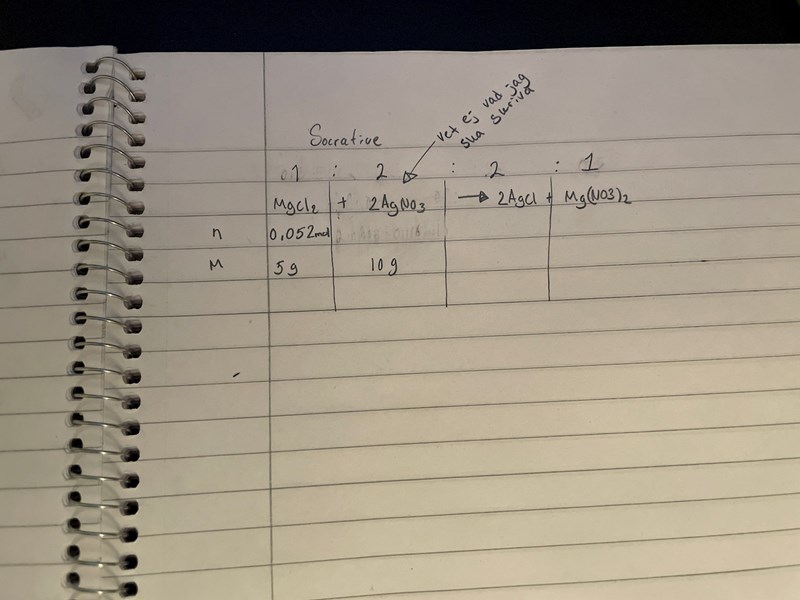 Socrative
vet ej vad jag
ska skriva
1 : 2 : 2 : 1
MgCl2 + 2AgNO3 → 2AgCl + Mg(NO3)2
n 0,052mol
M 5g 10g